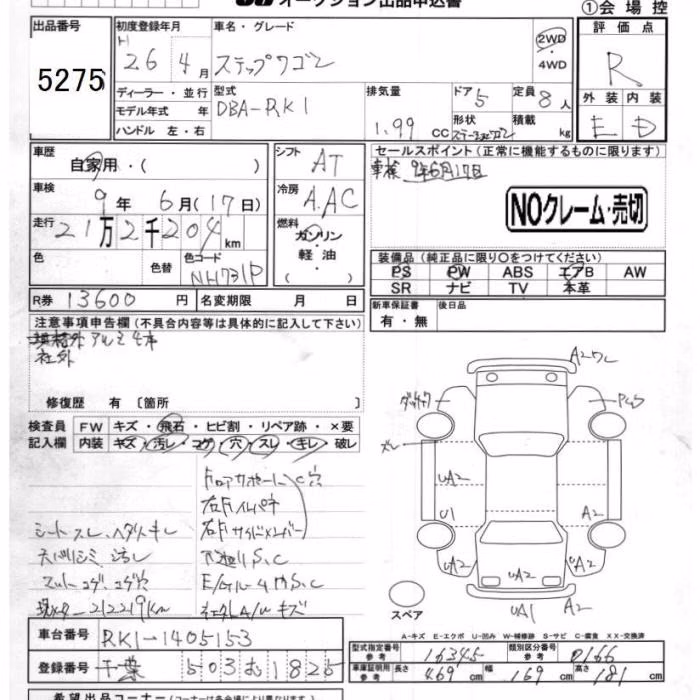 オークション出品申込書
①会場控
出品番号
5275
初度登録年月
H
26 4月
車名・グレード
ステップワゴン
2WD
・
4WD
評価点
R
外装 内装
E D
ディーラー・並行
モデル年式 年
ハンドル 左・右
型式
DBA-RK1
排気量
1.99 CC
ドア 5
定員 8人
形状
ステーションワゴン
積載
kg
車歴
自家用・( )
車検
9年 6月(17日)
走行
21万2千204km
色
色替
色コード
NH731P
シフト
AT
冷房
A.AC
燃料
ガソリン
・
軽油
・
( )
セールスポイント(正常に機能するものに限ります)
車検 9年6月17日
NOクレーム・売切
装備品(純正品に限り○をつけてください)
PS PW ABS エアB AW
SR ナビ TV 本革
R券 13600円
名変期限 月 日
新車保証書
有・無
後日品
注意事項申告欄(不具合内容等は具体的に記入して下さい)
規格外アルミ4本
社外
修復歴 有 [箇所 ]
検査員
記入欄
FW キズ・飛石・ヒビ割・リペア跡・×要
内装 キズ・汚レ・コゲ・穴・スレ・キレ・破レ
シートスレ、ヘタリ、キレ
天バリシミ、汚レ
マットコゲ、コゲ穴
現メーター212219km
F.ロアサポートC穴
右Fインパネ
右Fサイドメンバー
下廻りS.C
E/Gルーム内S.C
A2ワレ
A2
UA2
U1
A2
UA2
UA2
UA1
A2
スペア
A-キズ E-エクボ U-凹み W-補修跡 S-サビ C-腐食 XX-交換済
車台番号
RK1-1405153
登録番号
千葉 503 む 1825
型式指定番号
参考
16345
類別区分番号
参考
0166
車庫証明用
参考
長さ 469cm
幅 169cm
高さ 181cm
希望出品コーナー(コーナーは各会場により異なります)